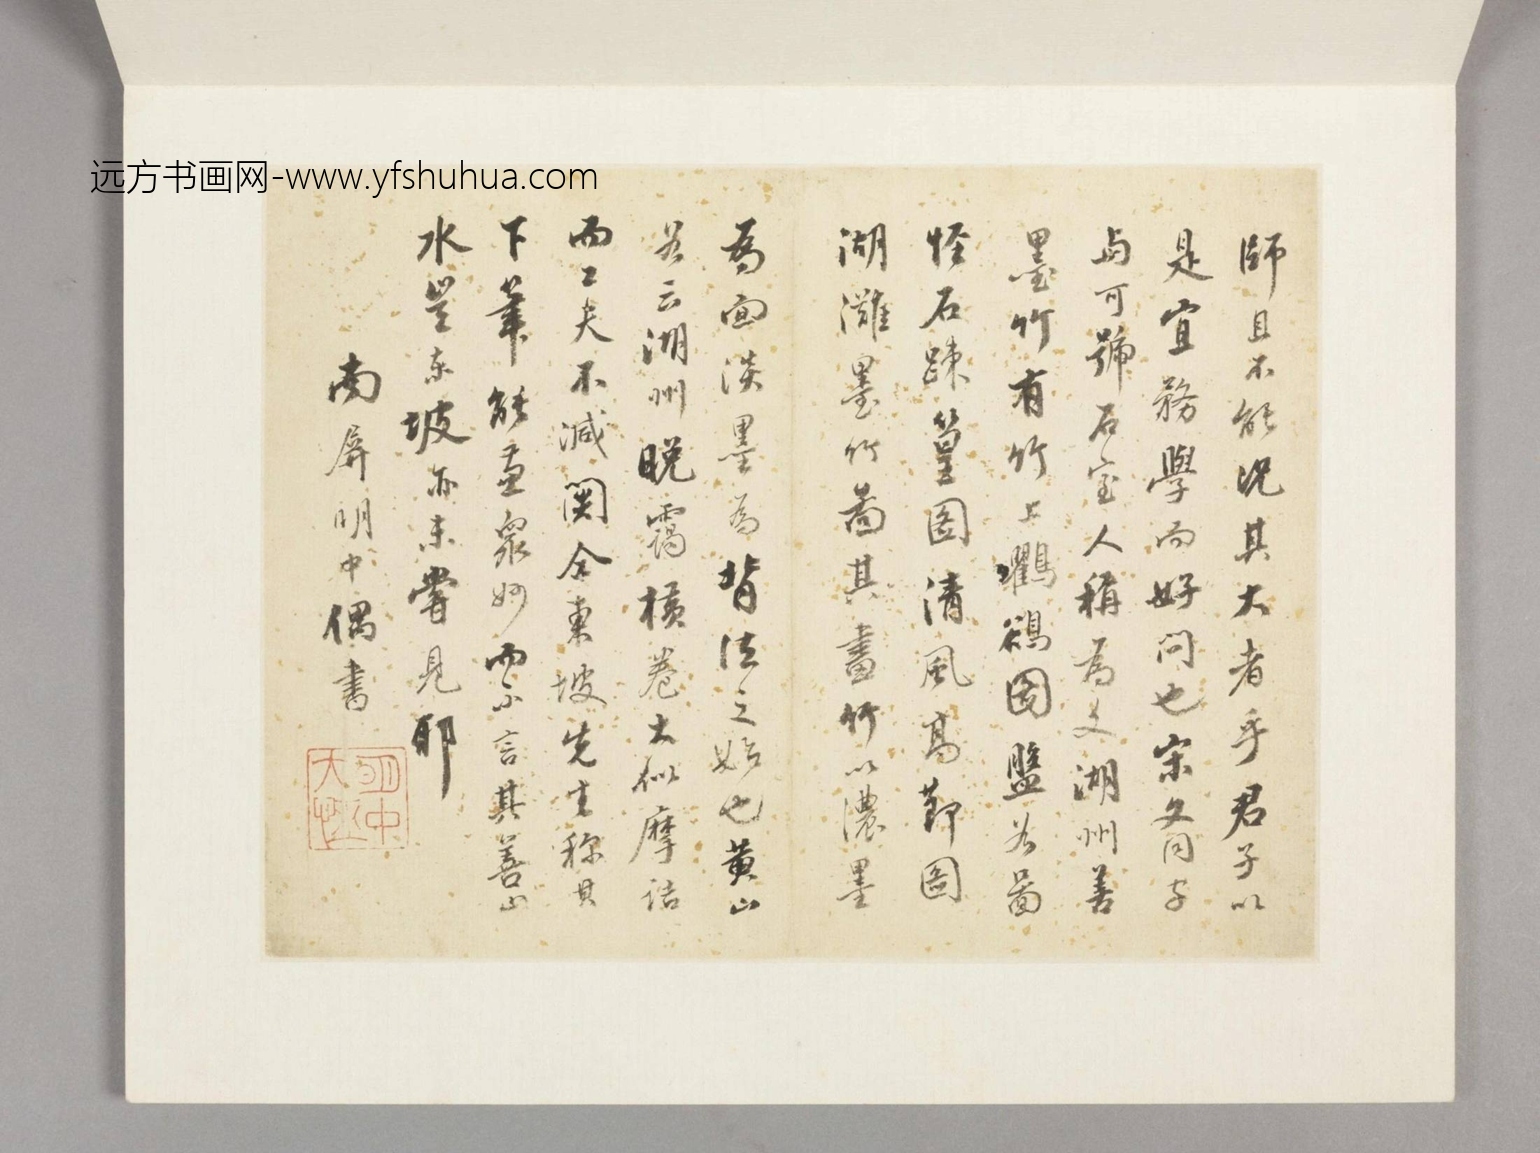 远方书画网-www.yfshuhua.com
師且不能況其大者乎君子以
是宜務學而好問也宋文同字
与可號石室人稱為文湖州善
墨竹有竹上鸜鵒圖盤谷圖
怪石踈篁圖清風高節圖
湖灘墨竹啚其畫竹以濃墨
為面淡墨為背法之始也黄山
谷云湖州晚靄横卷大似摩詰
而工夫不減関仝東坡先生稱其
下筆能兼衆妙而不言其善山
水豈东坡亦未嘗見耶
南屏明中偶書
明中
大恆